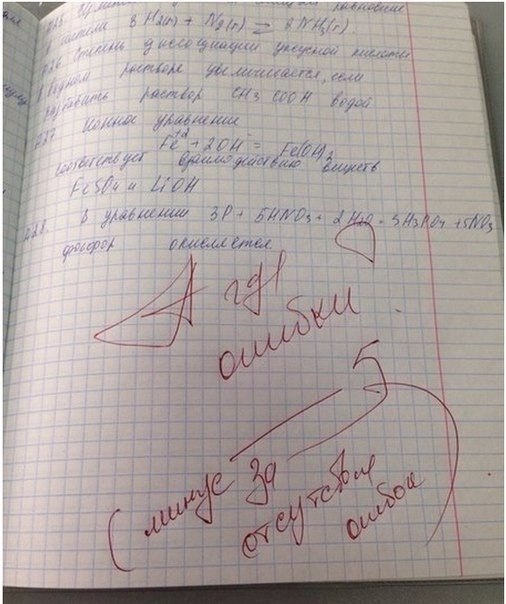 равновесие
системе 3 H₂(г) + N₂(г) ⇄ 2 NH₃(г).
А26. Степень диссоциации уксусной кислоты
в водном растворе увеличивается, если
разбавить раствор CH₃ COOH водой
А27. Ионное уравнение
Fe⁺² + 2OH⁻ = Fe(OH)₂
соответствует взаимодействию веществ
FeSO₄ и LiOH
А28. В уравнении 3P + 5HNO₃ + 2H₂O = 3H₃PO₄ + 5NO
фосфор окисляется.
А где
ошибки ?
5-
(минус за
отсутствие
ошибок)